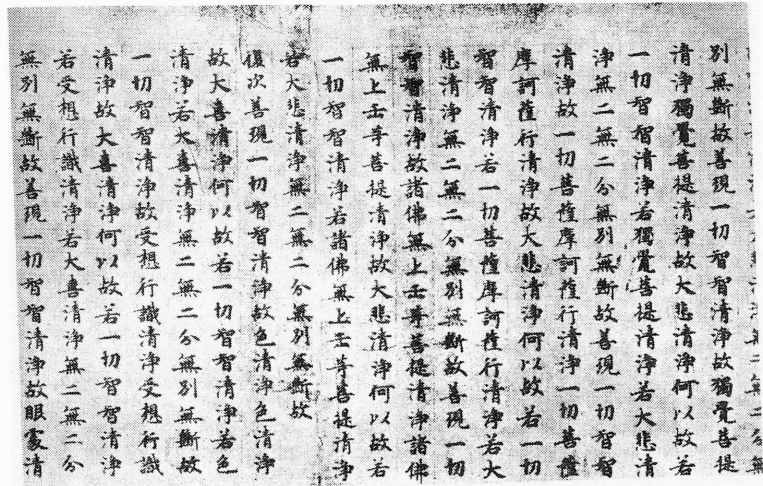 別無斷故善現一切智智清淨故獨覺菩提
清淨獨覺菩提清淨故大悲清淨何以故若
一切智智清淨若獨覺菩提清淨若大悲清
淨無二無二分無別無斷故善現一切智智
清淨故一切菩薩摩訶薩行清淨一切菩薩
摩訶薩行清淨故大悲清淨何以故若一切
智智清淨若一切菩薩摩訶薩行清淨若大
悲清淨無二無二分無別無斷故善現一切
智智清淨故諸佛無上正等菩提清淨諸佛
無上正等菩提清淨故大悲清淨何以故若
一切智智清淨若諸佛無上正等菩提清淨
若大悲清淨無二無二分無別無斷故
復次善現一切智智清淨故色清淨色清淨
故大喜清淨何以故若一切智智清淨若色
清淨若大喜清淨無二無二分無別無斷故
一切智智清淨故受想行識清淨受想行識
清淨故大喜清淨何以故若一切智智清淨
若受想行識清淨若大喜清淨無二無二分
無別無斷故善現一切智智清淨故眼處清